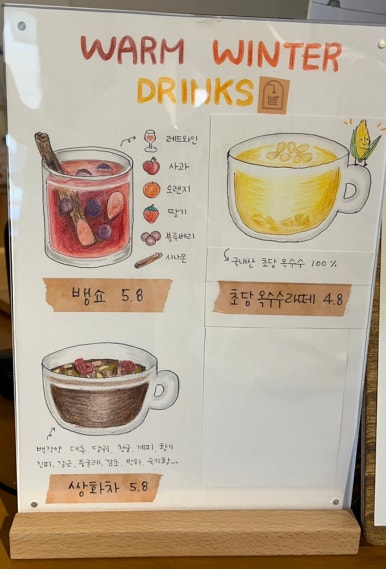 WARM WINTER
DRINKS
레드와인
사과
오렌지
딸기
블루베리
시나몬
뱅쇼 5.8
국내산 초당 옥수수 100%
초당 옥수수라떼 4.8
백작약, 대추, 당귀, 천궁, 계피, 황기
진피, 갈근, 둥굴레, 감초, 박하, 숙지황...
쌍화차 5.8